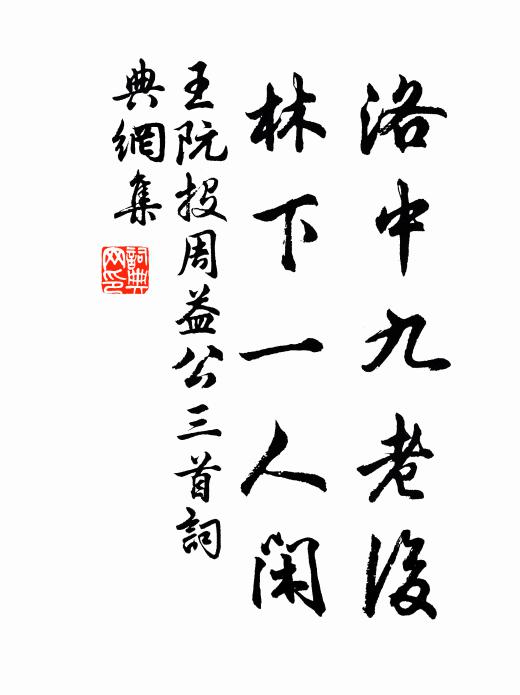 洛中九老後
林下一人閑
王阮投周益公三首詞
典網集
詞典
网印